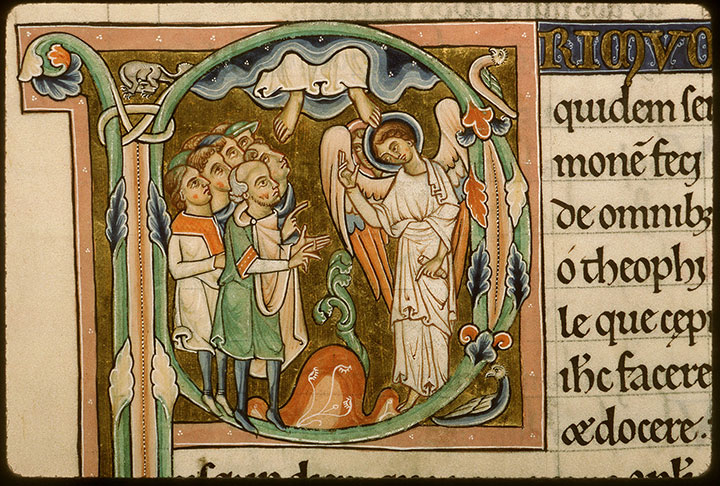 PRIMV
quidem ser
monē feci
de omnibꝫ
ó theophi
le que cępi
ih̄c facere
& docere.